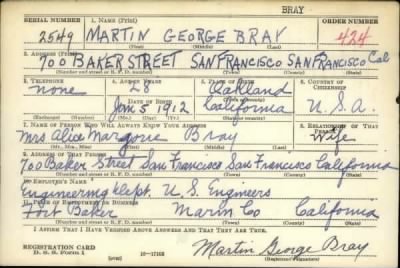 BRAY
SERIAL NUMBER 1. NAME (Print) ORDER NUMBER
2549 MARTIN GEORGE BRAY 424
(First) (Middle) (Last)
2. ADDRESS (Print)
700 BAKER STREET SAN FRANCISCO SAN FRANCISCO Cal
(Number and street or R. F. D. number) (Town) (County) (State)
3. TELEPHONE 4. AGE IN YEARS 5. PLACE OF BIRTH 6. COUNTRY OF CITIZENSHIP
none 28 Oakland
DATE OF BIRTH
Jan 5 1912 California U.S.A.
(Mo.) (Day) (Yr.) (State or country)
7. NAME OF PERSON WHO WILL ALWAYS KNOW YOUR ADDRESS 8. RELATIONSHIP OF THAT PERSON
Mrs Alice Marjorie Bray Wife
(Mr., Mrs., Miss) (First) (Middle) (Last)
9. ADDRESS OF THAT PERSON
700 Baker Street San Francisco San Francisco California
(Number and street or R. F. D. number) (Town) (County) (State)
10. EMPLOYER'S NAME
Engineering Dept. U.S. Engineers
11. PLACE OF EMPLOYMENT OR BUSINESS
Fort Baker Marin Co California
(Number and street or R. F. D. number) (Town) (County) (State)
I AFFIRM THAT I HAVE VERIFIED ABOVE ANSWERS AND THAT THEY ARE TRUE.
REGISTRATION CARD
D. S. S. Form 1 (over) Martin George Bray
(Registrant's signature)